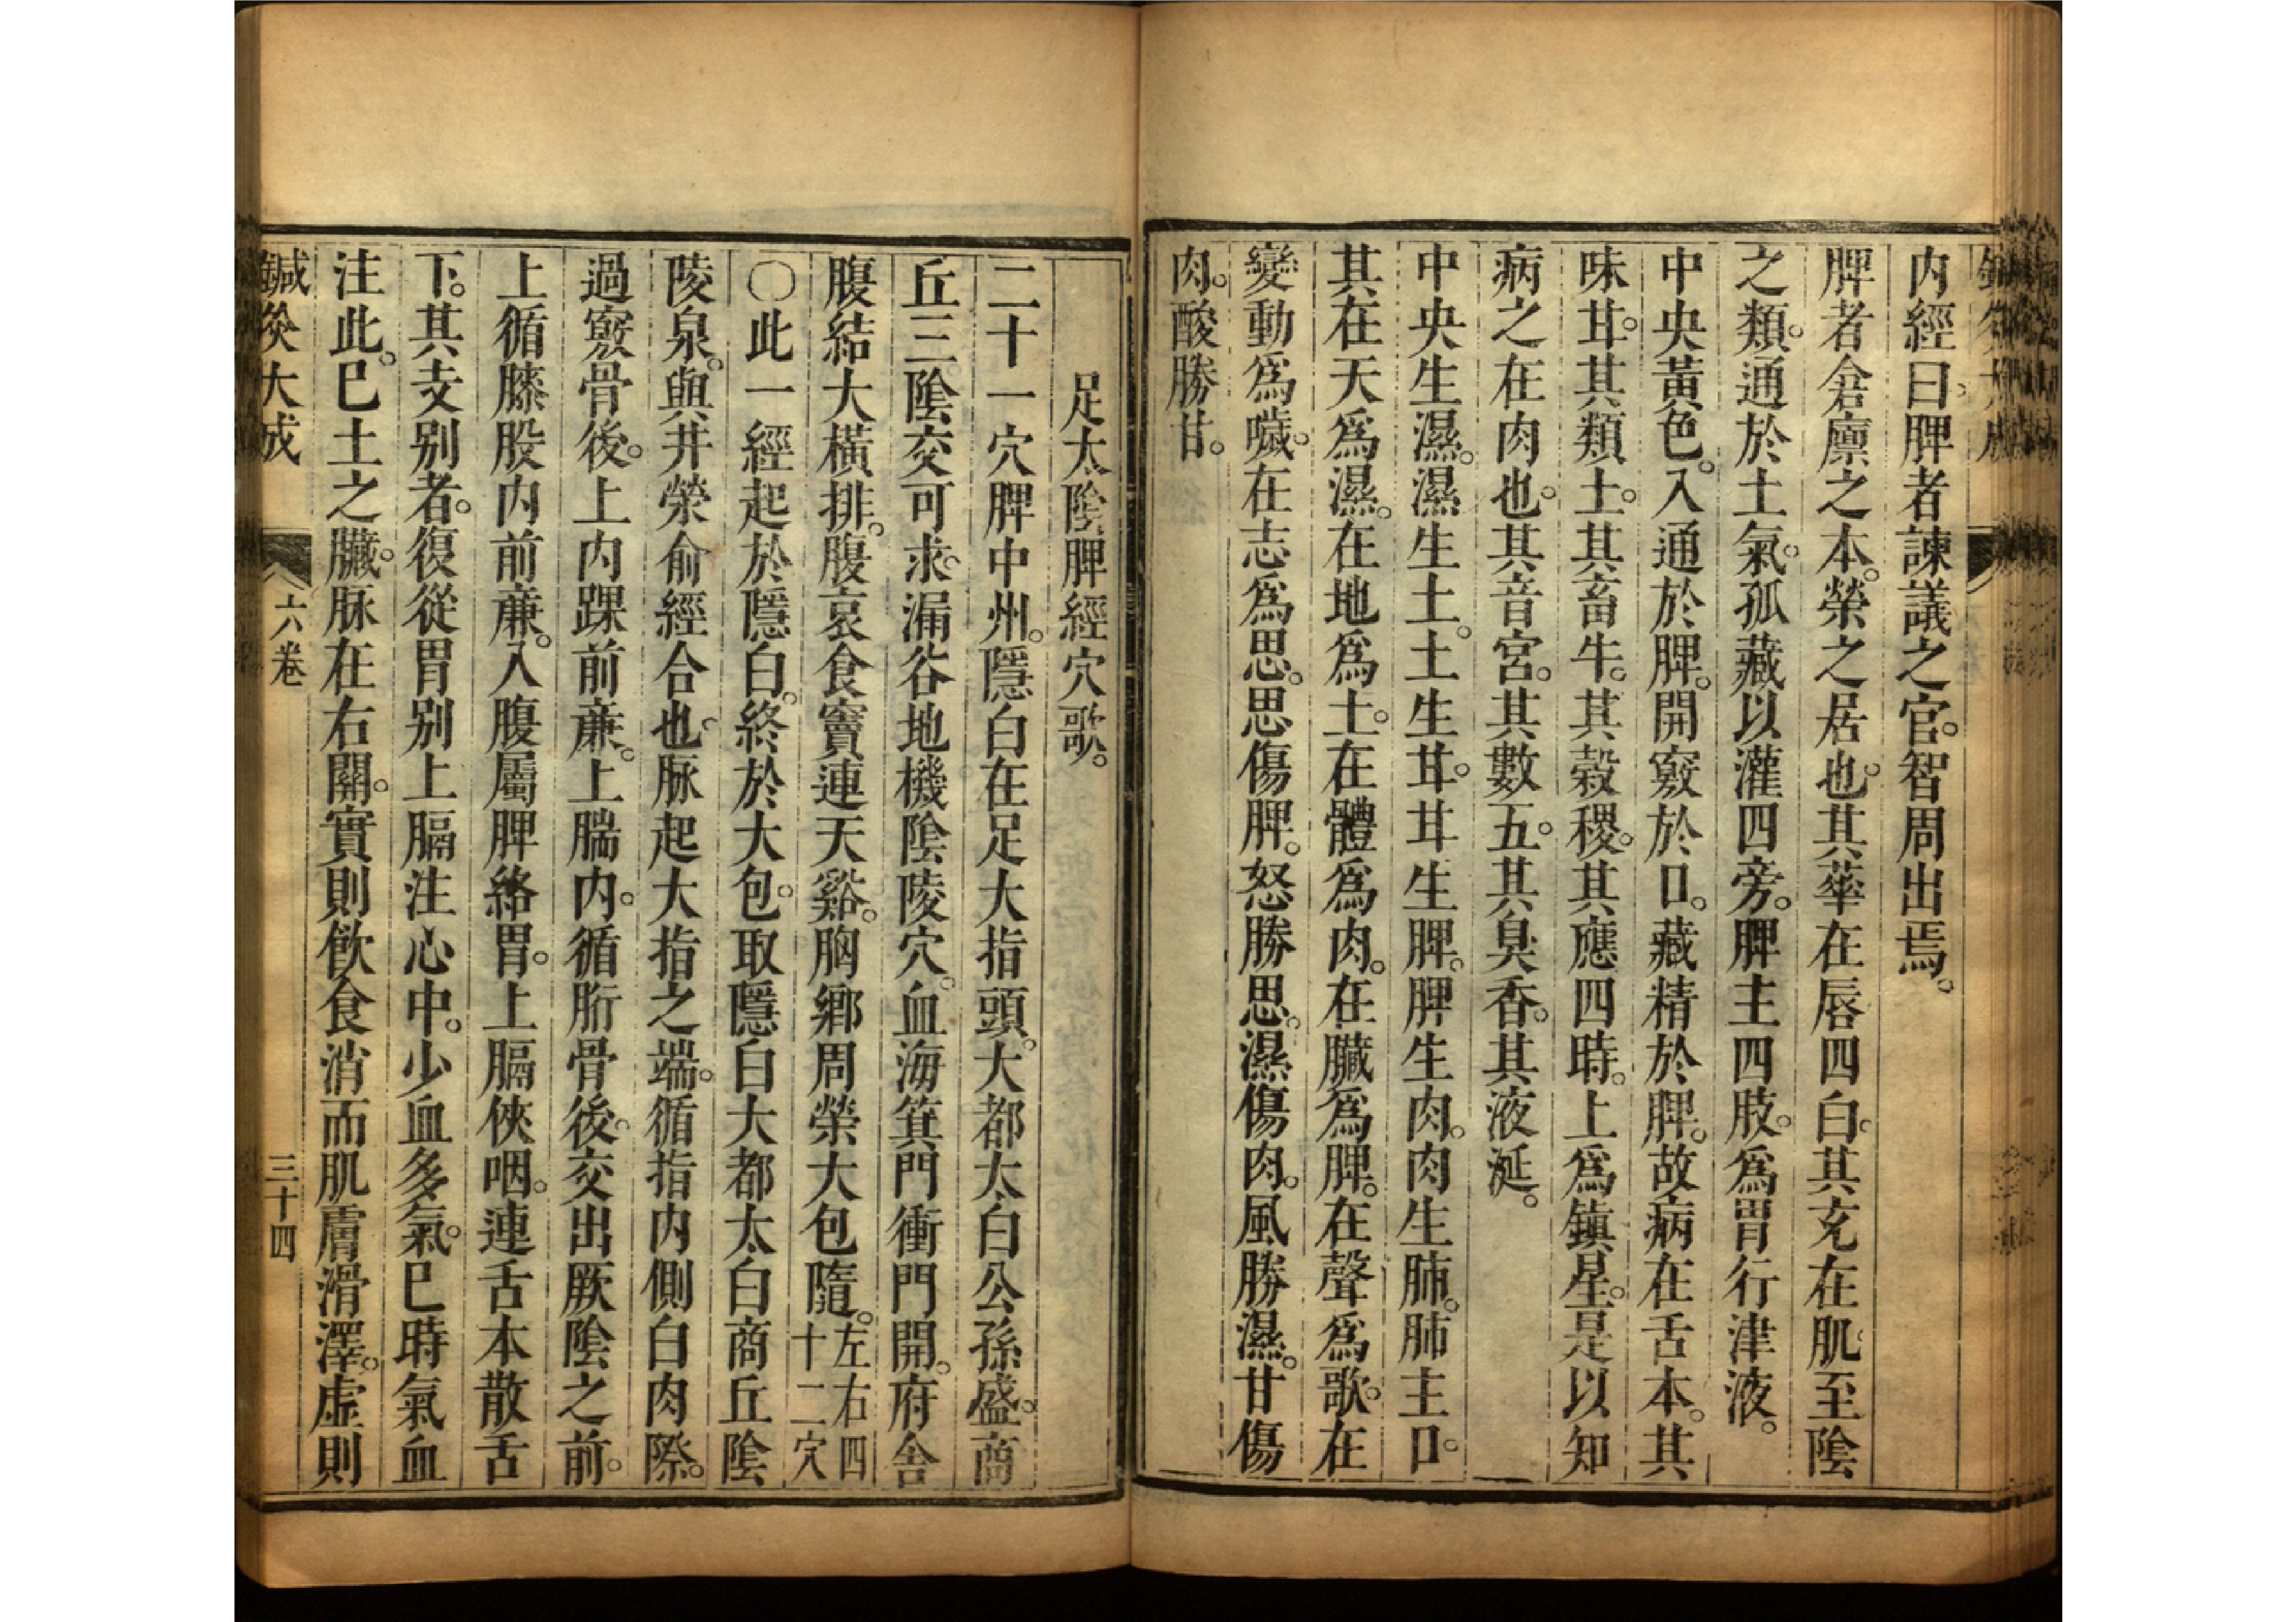 内經曰脾者諫議之官。智周出焉。
脾者倉廪之本。榮之居也。其華在唇四白。其充在肌至陰
之類。通於土氣。孤藏以灌四旁。脾主四肢。爲胃行津液。
中央黃色。入通於脾。開竅於口。藏精於脾。故病在舌本。其
味甘。其類土。其畜牛。其穀稷。其應四時。上爲鎮星。是以知
病之在肉也。其音宮。其數五。其臭香。其液涎。
中央生濕。濕生土。土生甘。甘生脾。脾生肉。肉生肺。肺主口。
其在天爲濕。在地爲土。在體爲肉。在臟爲脾。在聲爲歌。在
變動爲噦。在志爲思。思傷脾。怒勝思。濕傷肉。風勝濕。甘傷
肉。酸勝甘。
足太陰脾經穴歌。
二十一穴脾中州。隱白在足大指頭。大都太白公孫盛。商
丘三陰交可求。漏谷地機陰陵穴。血海箕門衝門開。府舍
腹結大橫排。腹哀食竇連天谿。胸鄉周榮大包隨。左右四十二穴
〇此一經起於隱白。終於大包。取隱白大都太白商丘陰
陵泉。與井榮俞經合也。脉起大指之端。循指内側白肉際。
過竅骨後。上内踝前廉。上腨内。循胻骨後。交出厥陰之前。
上循膝股内前廉。入腹屬脾絡胃。上膈俠咽。連舌本散舌
下。其支别者。復從胃别上膈注心中。少血多氣。巳時氣血
注此。巳土之臟。脉在右關。實則飲食消而肌膚滑澤。虛則
鍼灸大成
六卷
三十四